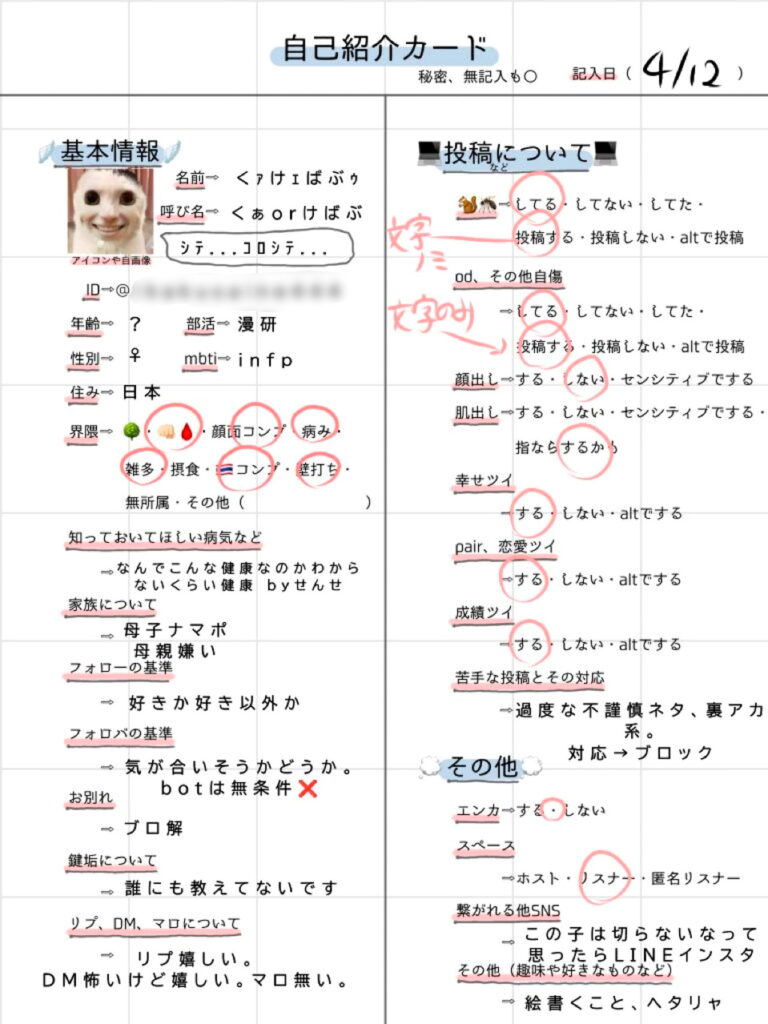 自己紹介カード
秘密、無記入も○
記入日（ 4/12 ）
基本情報
名前⇨ くァけェばぶゥ
呼び名⇨ くぁorけばぶ
ｼﾃ...ｺﾛｼﾃ...
アイコンや自画像
ID⇨@
年齢⇨ ? 部活⇨ 漫研
性別⇨ ♀ mbti⇨ infp
住み⇨ 日本
界隈⇨ 🌳・👊🏻🩸・顔面コンプ 病み・
雑多・摂食・🇹🇭コンプ・壁打ち・
無所属・その他（ ）
知っておいてほしい病気など
⇨なんでこんな健康なのかわから
ないくらい健康 byせんせ
家族について
⇨ 母子ナマポ
母親嫌い
フォローの基準
⇨ 好きか好き以外か
フォロバの基準
⇨ 気が合いそうかどうか。
botは無条件❌
お別れ
⇨ ブロ解
鍵垢について
⇨ 誰にも教えてないです
リプ、DM、マロについて
⇨ リプ嬉しい。
DM怖いけど嬉しい。マロ無い。
💻投稿について💻
など
🐿🦟⇨してる・してない・してた・
投稿する・投稿しない・altで投稿
文字
ノミ
od、その他自傷
⇨してる・してない・してた・
投稿する・投稿しない・altで投稿
文字のみ
顔出し⇨する・しない・センシティブでする
肌出し⇨する・しない・センシティブでする・
指ならするかも
幸せツイ
⇨する・しない・altでする
pair、恋愛ツイ
⇨する・しない・altでする
成績ツイ
⇨する・しない・altでする
苦手な投稿とその対応
⇨過度な不謹慎ネタ、裏アカ
系。
対応→ブロック
その他
エンカ⇨する・しない
スペース
⇨ホスト・リスナー・匿名リスナー
繋がれる他SNS
⇨ この子は切らないなって
思ったらLINEインスタ
その他（趣味や好きなものなど）
⇨ 絵書くこと、ヘタリャ